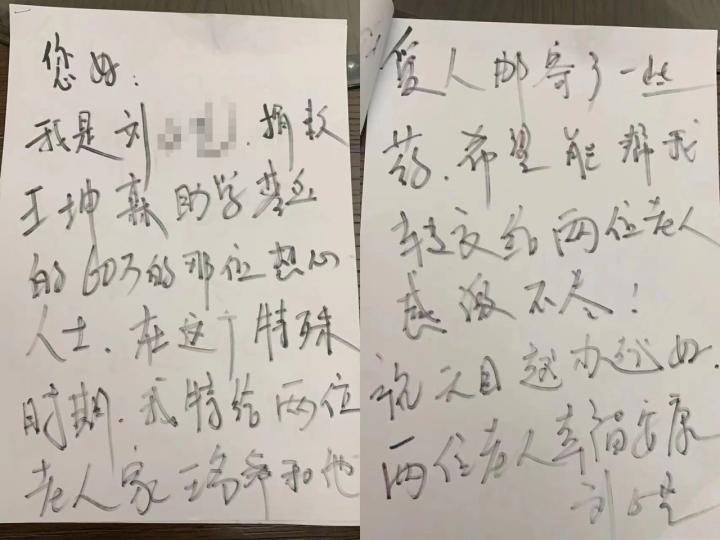 您好:
我是刘 .捐款
王坤森助学基金
的60万的那位热心
人士.在这个特殊
时期.我特给两位
老人家王 和他
爱人邮寄了一些
药.希望能帮我
转交给两位老人
感激不尽!
祝天目越办越好.
两位老人幸福安康
刘